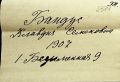 Бандус
Клавдия Семеновна
1907
1 Безымянная 9